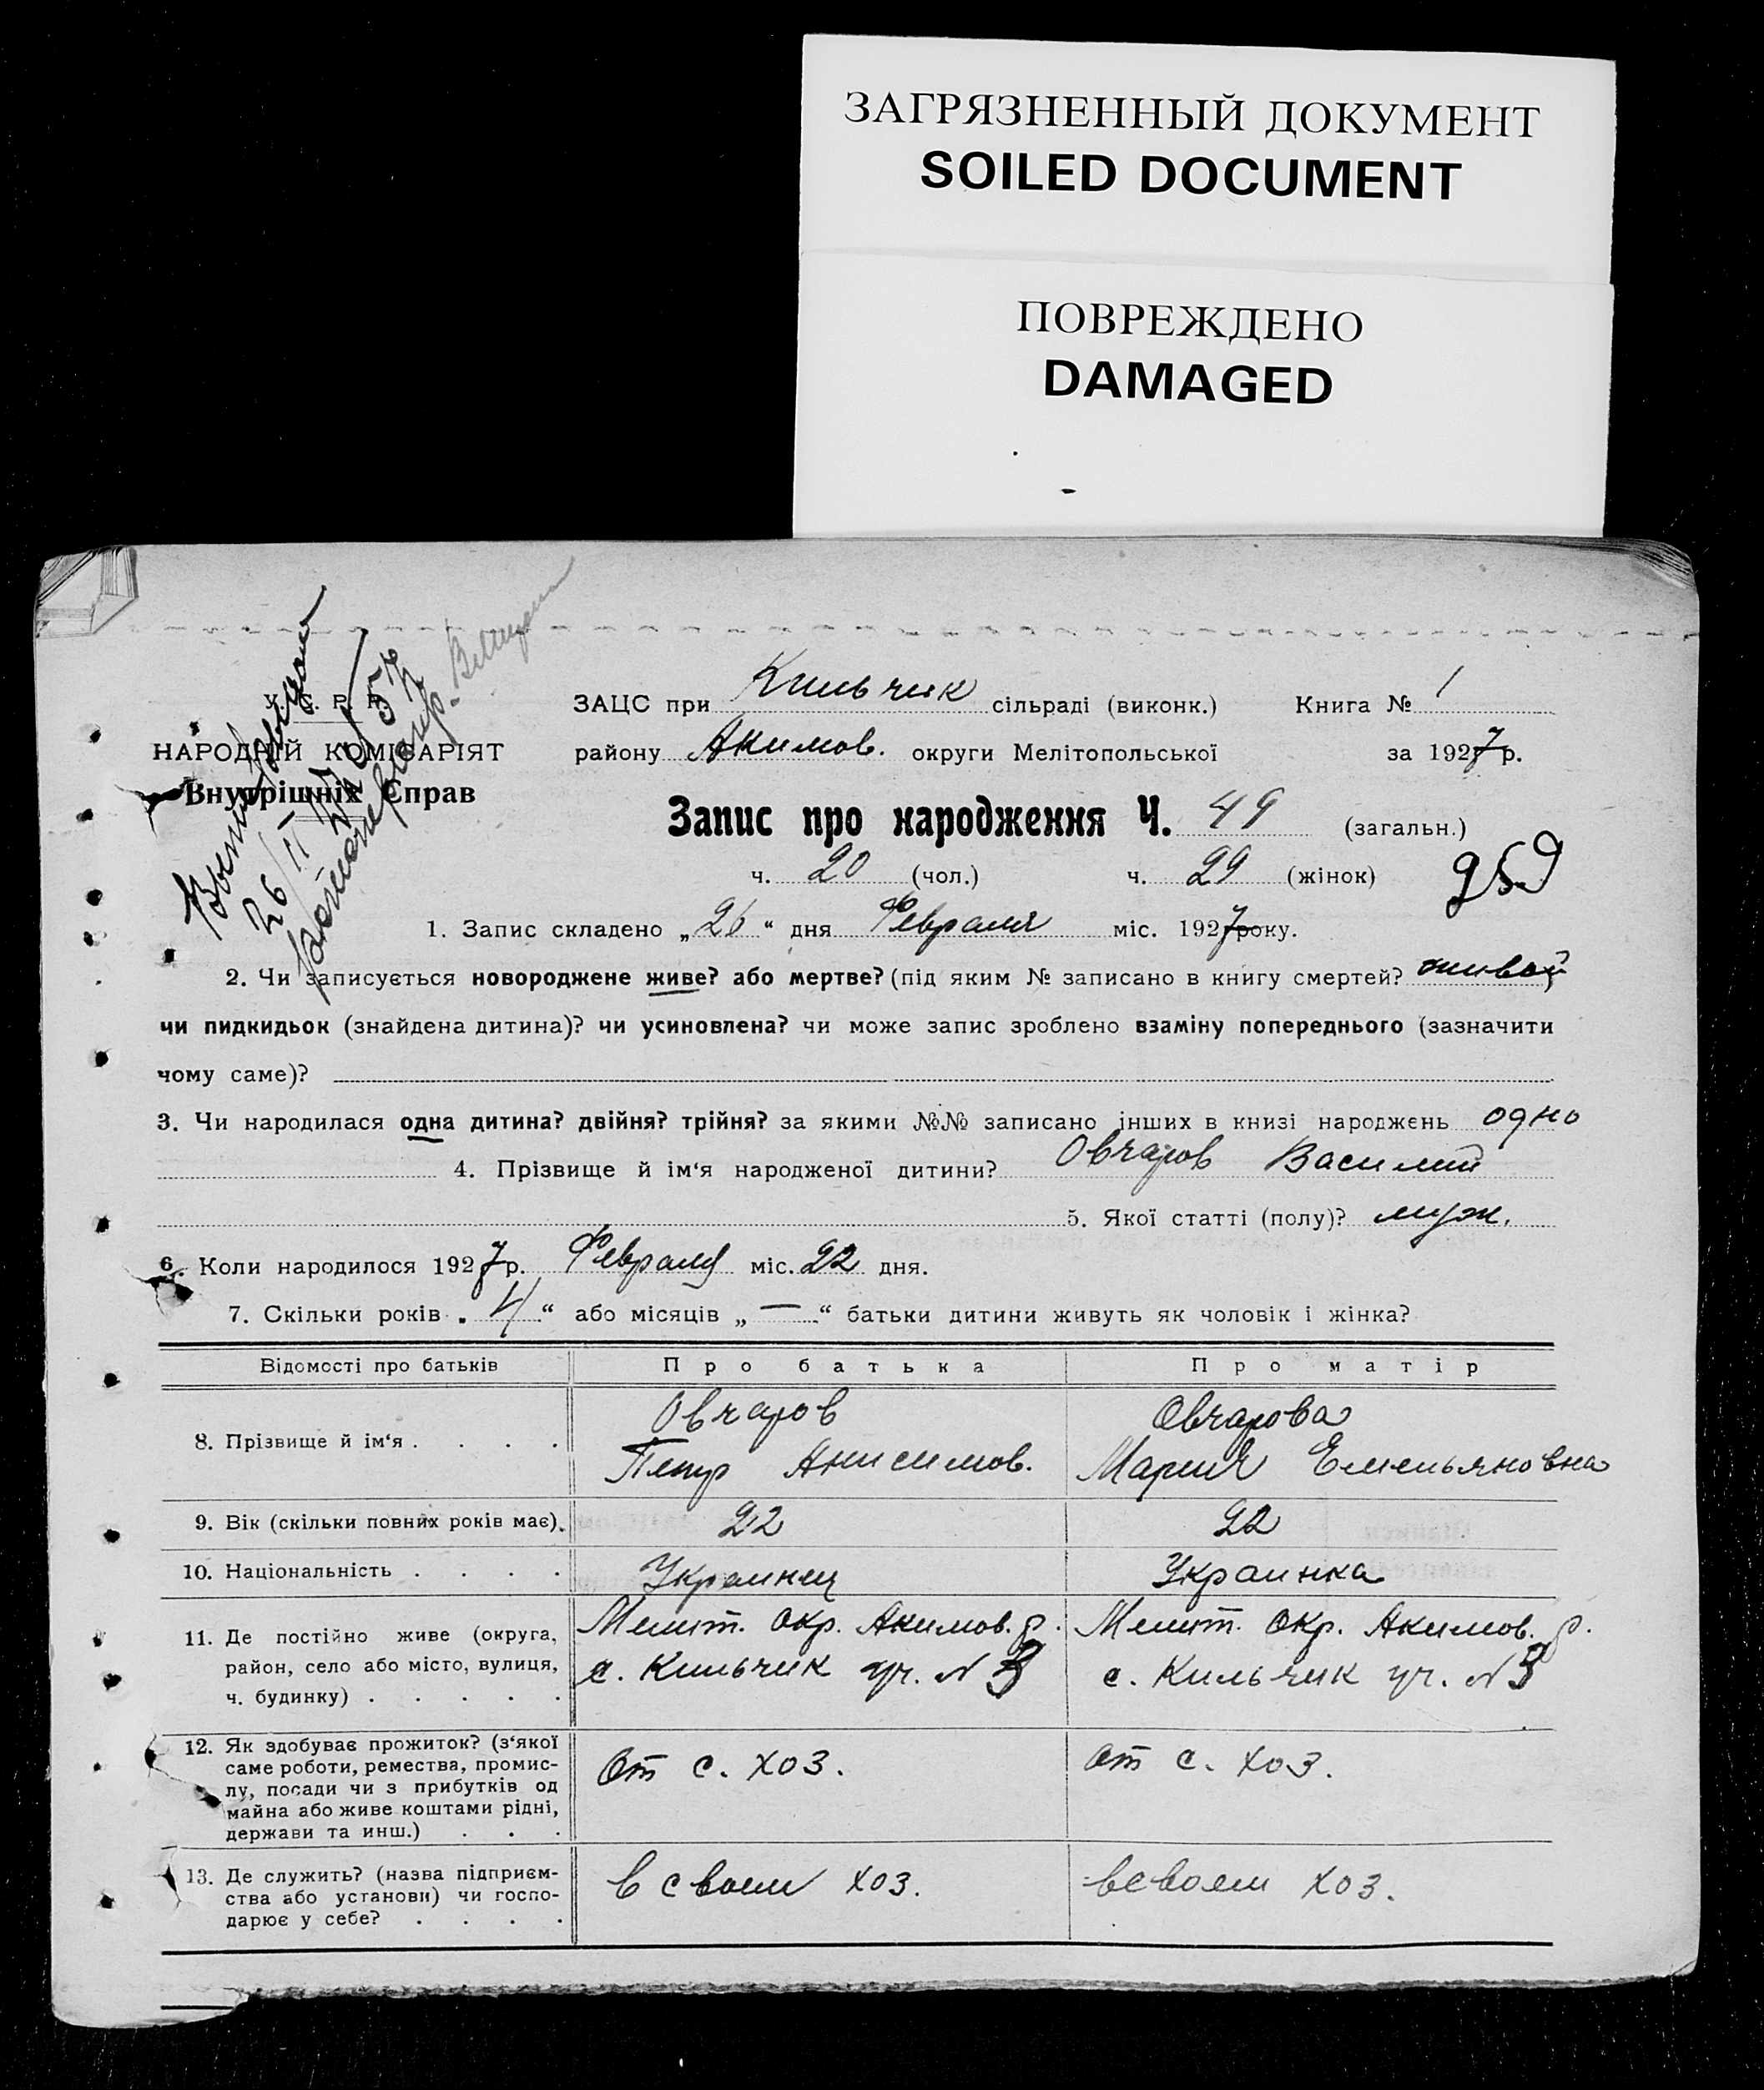 ЗАГРЯЗНЕННЫЙ ДОКУМЕНТ
SOILED DOCUMENT
ПОВРЕЖДЕНО
DAMAGED
У. С. Р. Р.
НАРОДНІЙ КОМІСАРІЯТ
Внутрішніх Справ
26/II
ЗАЦС при Кильчик сільраді (виконк.) Книга № 1
району Акимов. округи Мелітопольської за 1927 р.
Запис про народження Ч. 49 (загальн.)
ч. 20 (чол.) ч. 29 (жінок)
959
1. Запис складено „26“ дня Февраля міс. 1927 року.
2. Чи записується новороджене живе? або мертве? (під яким № записано в книгу смертей? живой)
чи пидкидьок (знайдена дитина)? чи усиновлена? чи може запис зроблено взаміну попереднього (зазначити
чому саме)?
3. Чи народилася одна дитина? двійня? трійня? за якими №№ записано інших в книзі народжень одно
4. Прізвище й ім‘я народженої дитини? Овчаров Василий
5. Якої статті (полу)? муж.
6. Коли народилося 1927 р. Февраля міс. 22 дня.
7. Скільки років „4“ або місяців „—“ батьки дитини живуть як чоловік і жінка?
Відомості про батьків Про батька Про матір
8. Прізвище й ім‘я . . . . Овчаров Петр Анисимов. Овчарова Мария Емельяновна
9. Вік (скільки повних років має). 22 22
10. Національність . . . . Украинец Украинка
11. Де постійно живе (округа,
район, село або місто, вулиця,
ч. будинку) . . . . .
Мелит. окр. Акимов. р.
с. Кильчик уч. № 3
Мелит. окр. Акимов. р.
с. Кильчик уч. № 3
12. Як здобуває прожиток? (з‘якої
саме роботи, ремества, промис-
лу, посади чи з прибутків од
майна або живе коштами рідні,
держави та инш.) . . .
от с. хоз.
от с. хоз.
13. Де служить? (назва підприєм-
ства або установи) чи госпо-
дарює у себе? . . . .
в своем хоз.
в своем хоз.